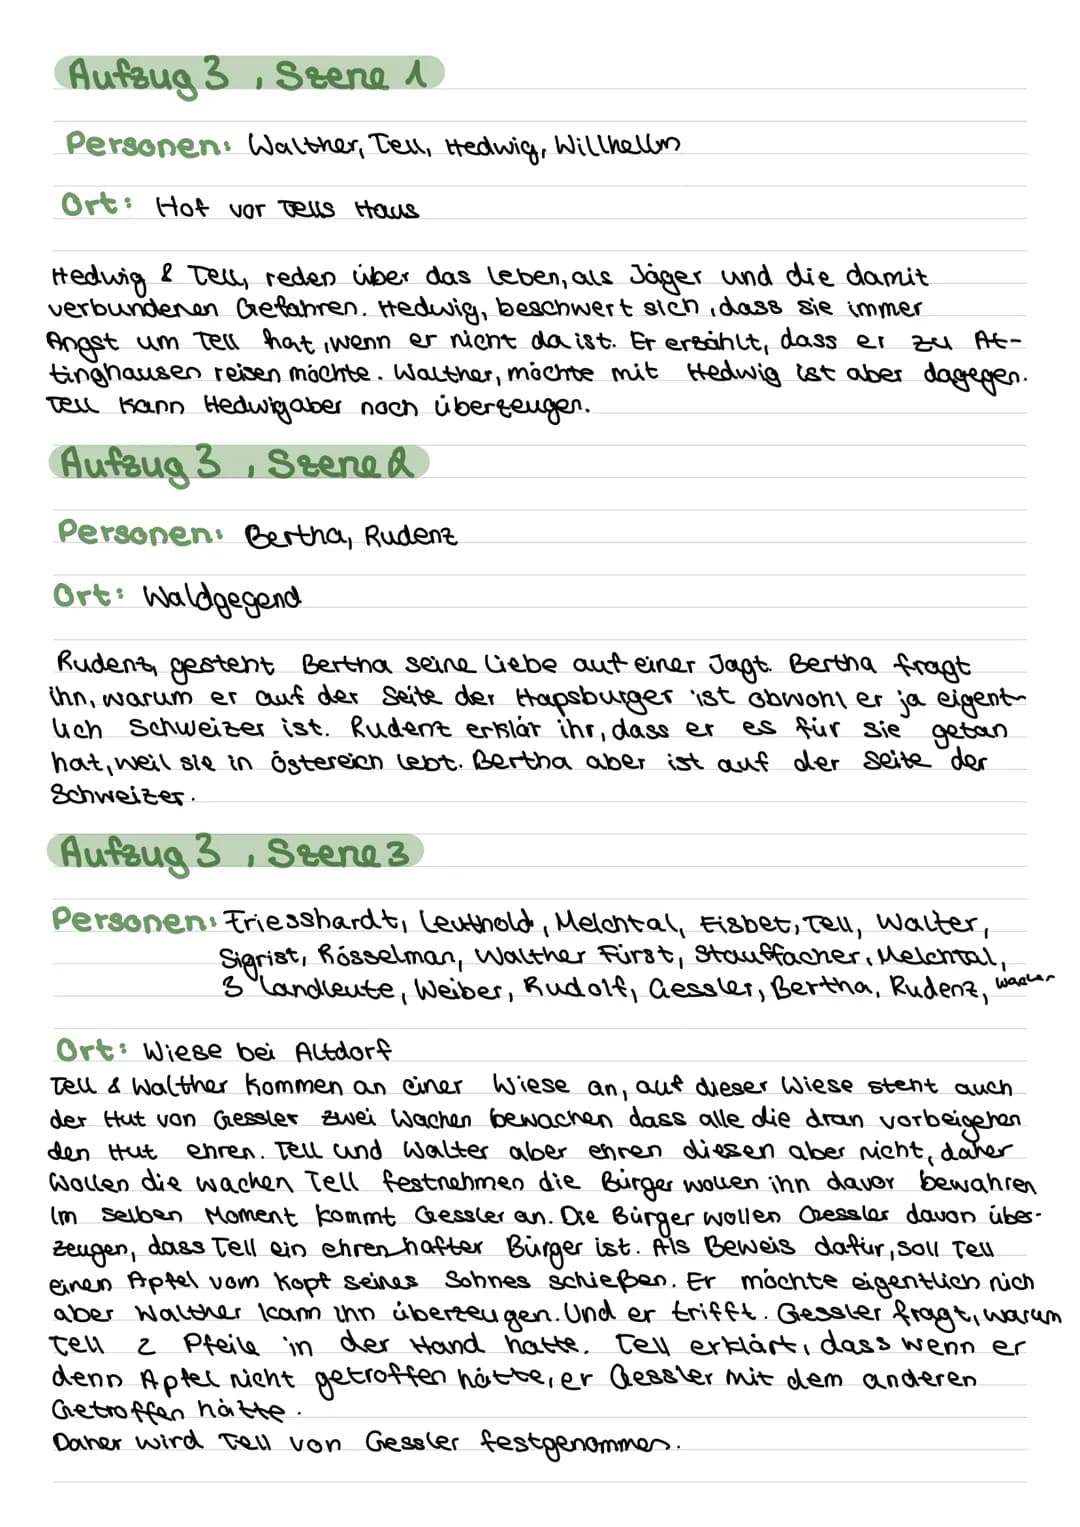 Aufzug 3, Szene 1
Personen: Walther, Tell, Hedwig, Willhelm
Ort: Hof vor Tells Haus
Hedwig & Tell, reden über das Leben, als Jäger und die damit
verbundenen Gefahren. Hedwig, beschwert sich, dass sie immer
Angst um Tell hat, wenn er nicht da ist. Er erzählt, dass er zu At-
tinghausen reisen möchte. Walther, möchte mit Hedwig ist aber dagegen.
Tell kann Hedwig aber noch überzeugen.
Aufzug 3, Szene 2
Personen: Bertha, Rudenz
Ort: Waldgegend
Rudenz, gesteht Bertha seine Liebe auf einer Jagt. Bertha fragt
ihn, warum er auf der Seite der Hapsburger ist obwohl er ja eigent-
lich Schweizer ist. Rudenz erklär ihr, dass er es für sie getan
hat, weil sie in Östereich lebt. Bertha aber ist auf der Seite der
Schweizer.
Aufzug 3, Szene 3
Personen: Friesshardt, Leuthold, Melchtal, Elsbet, Tell, Walter,
Sigrist, Rösselman, Walther Fürst, Stauffacher, Melchtal,
3 Landleute, Weiber, Rudolf, Gessler, Bertha, Rudenz,
Ort: Wiese bei Altdorf
Tell & Walther kommen an einer Wiese an, auf dieser Wiese steht auch
der Hut von Gessler zwei Wachen bewachen dass alle die dran vorbeigehen
den Hut ehren. Tell und Walter aber ehren diesen aber nicht, daher
Wollen die wachen Tell festnehmen die Bürger wollen ihn davor bewahren
Im selben Moment kommt Gessler an. Die Bürger wollen Gessler davon über-
zeugen, dass Tell ein ehrenhafter Bürger ist. Als Beweis dafür, soll Tell
einen Apfel vom Kopf seines Sohnes schießen. Er möchte eigentlich nich
aber Walther kann ihn überzeugen. Und er trifft. Gessler fragt, warum
Tell 2 Pfeile in der Hand hatte. Tell erklärt, dass wenn er
denn Apfel nicht getroffen hätte, er Gessler mit dem anderen
Getroffen hätte.
Daher wird Tell von Gessler festgenommen.